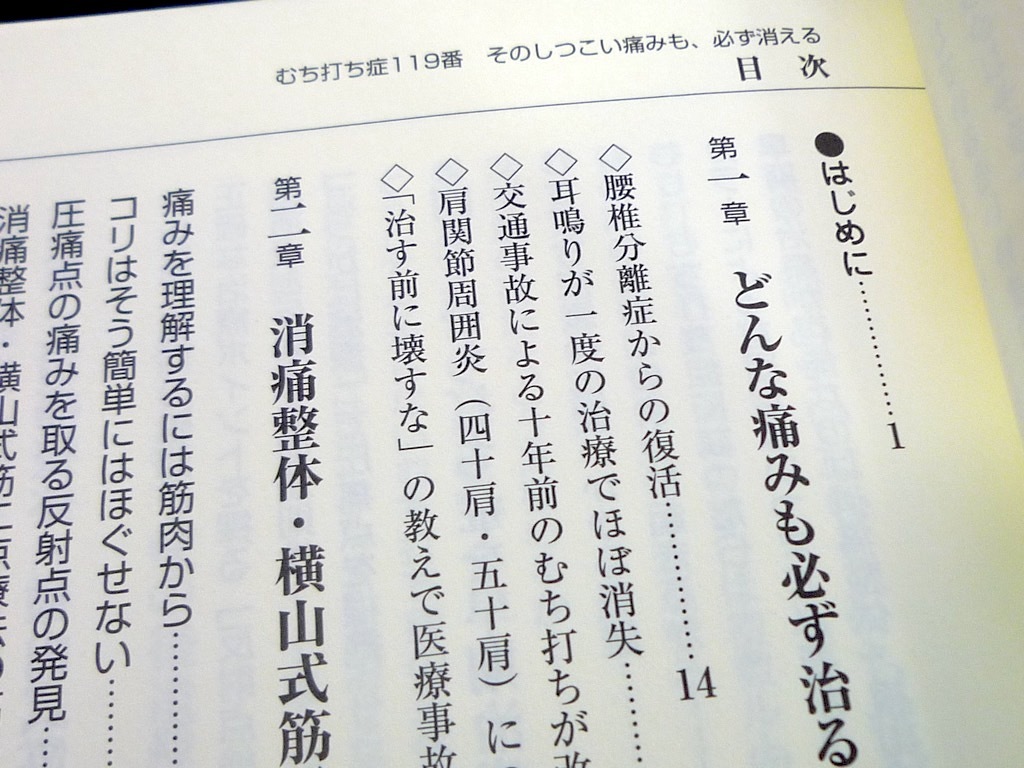 むち打ち症119番　そのしつこい痛みも、必ず消える
目　次
●はじめに…………1
第一章　どんな痛みも必ず治る
◇腰椎分離症からの復活…………14
◇耳鳴りが一度の治療でほぼ消失……
◇交通事故による十年前のむち打ちが改
◇肩関節周囲炎（四十肩・五十肩）に
◇「治す前に壊すな」の教えで医療事故
第二章　消痛整体・横山式筋
痛みを理解するには筋肉から…………
コリはそう簡単にはほぐせない……
圧痛点の痛みを取る反射点の発見……
消痛整体・横山式筋二点療法の